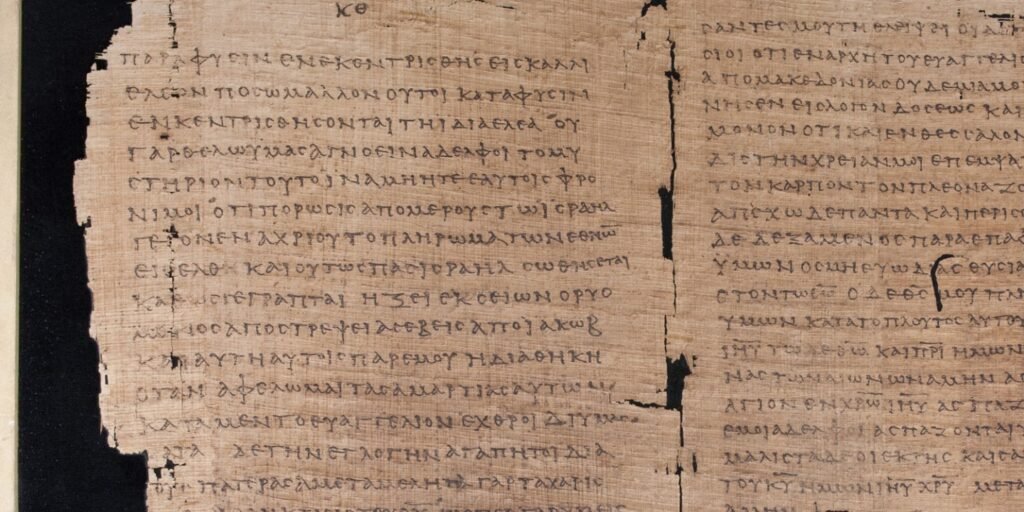 ΚΘ
ΠΑΡΑ ΦΥϹΙΝ ΕΝΕΚΕΝΤΡΙϹΘΗϹ ΕΙϹ ΚΑΛΛΙ
ΕΛΕΟΝ ΠΟϹΩ ΜΑΛΛΟΝ ΟΥΤΟΙ ΚΑΤΑ ΦΥϹΙΝ
ΕΝΚΕΝΤΡΙϹΘΗϹΟΝΤΑΙ ΤΗΙ ΙΔΙΑ ΕΛΕΑ ΟΥ
ΓΑΡ ΘΕΛΩ ΥΜΑϹ ΑΓΝΟΕΙΝ ΑΔΕΛΦΟΙ ΤΟ ΜΥ
ϹΤΗΡΙΟΝ ΤΟΥΤΟ ΙΝΑ ΜΗ ΗΤΕ ΕΑΥΤΟΙϹ ΦΡΟ
ΝΙΜΟΙ ΟΤΙ ΠΟΡΩϹΙϹ ΑΠΟ ΜΕΡΟΥϹ ΤΩΙ ϹΡΑΗΛ
ΓΕΓΟΝΕΝ ΑΧΡΙ ΟΥ ΤΟ ΠΛΗΡΩΜΑ ΤΩΝ ΕΘΝΩ̅
ΕΙϹΕΛΘΗ ΚΑΙ ΟΥΤΩϹ ΠΑϹ ΙϹΡΑΗΛ ϹΩΘΗϹΕΤΑΙ
ΓΕΓΡΑΠΤΑΙ ΗΞΕΙ ΕΚ ϹΕΙΩΝ Ο ΡΥΟ
ΑΠΟϹΤΡΕΨΕΙ ΑϹΕΒΕΙϹ ΑΠΟ ΙΑΚΩΒ
ΚΑΙ ΑΥΤΗ ΑΥΤΟΙϹ ΠΑΡ ΕΜΟΥ Η ΔΙΑΘΗΚΗ
ΟΤΑΝ ΑΦΕΛΩΜΑΙ ΤΑϹ ΑΜΑΡΤΙΑϹ ΑΥΤΩΝ
ΚΑΤΑ ΜΕΝ ΤΟ ΕΥΑΓΓΕΛΙΟΝ ΕΧΘΡΟΙ ΔΙ ΥΜΑϹ
ΔΕ ΤΗΝ ΕΓΛΟΓΗΝ ΑΓΑΠΗΤΟΙ ΔΙΑ
ΠΑΤΕΡΑϹ ΑΜΕΤΑΜΕΛΗΤΑ ΓΑΡ ΤΑ ΧΑΡΙϹ
ϹΑΝΤΕϹ ΜΟΥ ΤΗ ΘΛΕΙΨΕΙ
ϹΙΟΙ ΟΤΙ ΕΝ ΑΡΧΗ ΤΟΥ ΕΥΑΓΓΕΛΙΟ
ΑΠΟ ΜΑΚΕΔΟΝΙΑϹ ΟΥΔΕΜΙΑ ΜΟ
ΝΗϹΕΝ ΕΙϹ ΛΟΓΟΝ ΔΟϹΕΩϹ ΚΑΙ
ΜΟΝΟΝ ΟΤΙ ΚΑΙ ΕΝ ΘΕϹϹΑΛΟΝ
ΔΙϹ ΤΗΝ ΧΡΕΙΑΝ ΜΟΙ ΕΠΕΜΨΑ
ΤΟΝ ΚΑΡΠΟΝ ΤΟΝ ΠΛΕΟΝΑΖΟ
ΑΠΕΧΩ ΔΕ ΠΑΝΤΑ ΚΑΙ ΠΕΡΙϹ
ΔΕ ΔΕΞΑΜΕΝΟϹ ΠΑΡΑ ΕΠΑΦ
ΥΜΩΝ ΟϹΜΗ ΕΥΩΔΙΑϹ ΘΥϹΙΑ
ϹΤΟΝ ΤΩ Θ̅Ω̅ Ο ΔΕ Θ̅Ϲ̅ ΜΟΥ ΠΛΗ
ΥΜΩΝ ΚΑΤΑ ΤΟ ΠΛΟΥΤΟϹ ΑΥΤΟΥ
Ι̅Η̅Υ̅ ΤΩ ΔΕ Θ̅Ω̅ ΚΑΙ Π̅Ρ̅Ι̅ ΗΜΩΝ
ΝΑϹ ΤΩΝ ΑΙΩΝΩΝ ΑΜΗΝ ΑϹ
ΑΓΙΟΝ ΕΝ Χ̅Ρ̅Ω̅ Ι̅Η̅Υ̅ ΑϹΠΑΖ
ΕΜΟΙ ΑΔΕΛΦΟΙ ΑϹΠΑΖΟΝΤΑΙ Υ
ΜΑΛΙϹΤΑ ΔΕ ΟΙ ΕΚ ΤΗϹ ΚΑΙϹΑ
ΤΟΥ Κ̅Υ̅ ΗΜΩΝ Ι̅Η̅Υ̅ Χ̅Ρ̅Υ̅ ΜΕΤΑ